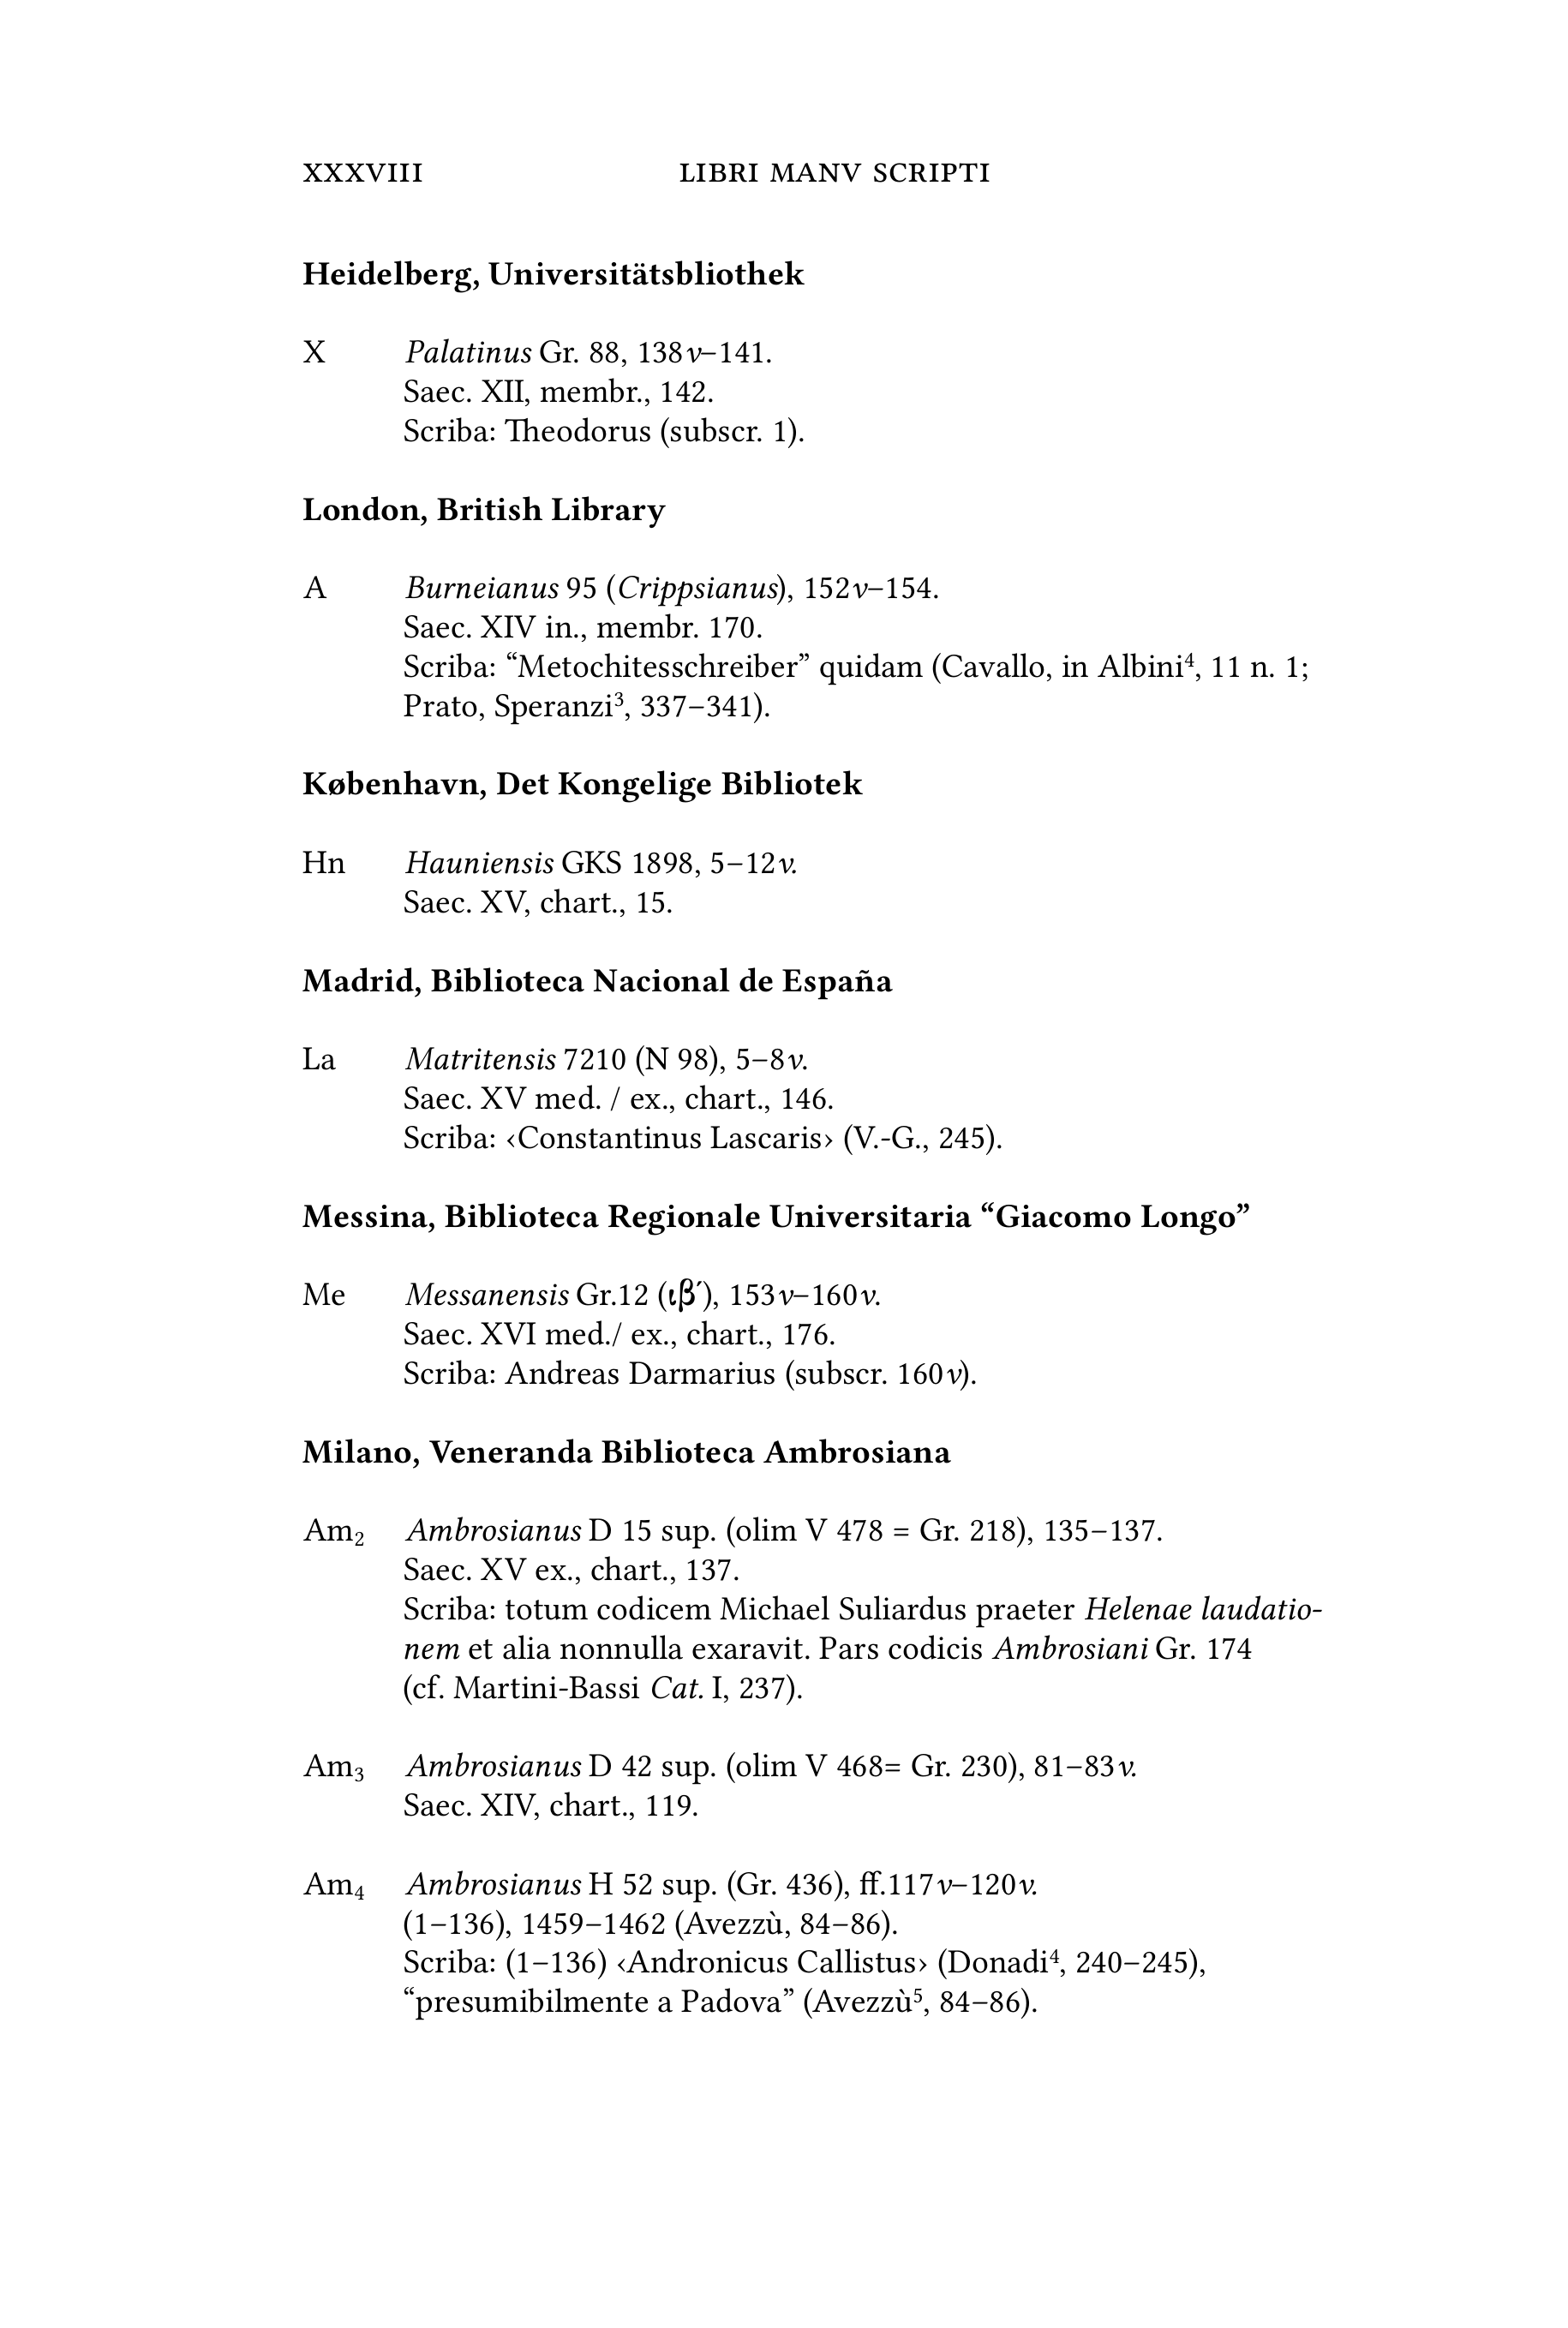 XXXVIII LIBRI MANV SCRIPTI
Heidelberg, Universitätsbliothek
X Palatinus Gr. 88, 138v–141.
Saec. XII, membr., 142.
Scriba: Theodorus (subscr. 1).
London, British Library
A Burneianus 95 (Crippsianus), 152v–154.
Saec. XIV in., membr. 170.
Scriba: “Metochitesschreiber” quidam (Cavallo, in Albini⁴, 11 n. 1;
Prato, Speranzi³, 337–341).
København, Det Kongelige Bibliotek
Hn Hauniensis GKS 1898, 5–12v.
Saec. XV, chart., 15.
Madrid, Biblioteca Nacional de España
La Matritensis 7210 (N 98), 5–8v.
Saec. XV med. / ex., chart., 146.
Scriba: ‹Constantinus Lascaris› (V.-G., 245).
Messina, Biblioteca Regionale Universitaria “Giacomo Longo”
Me Messanensis Gr.12 (ιβ´), 153v–160v.
Saec. XVI med./ ex., chart., 176.
Scriba: Andreas Darmarius (subscr. 160v).
Milano, Veneranda Biblioteca Ambrosiana
Am₂ Ambrosianus D 15 sup. (olim V 478 = Gr. 218), 135–137.
Saec. XV ex., chart., 137.
Scriba: totum codicem Michael Suliardus praeter Helenae laudatio-
nem et alia nonnulla exaravit. Pars codicis Ambrosiani Gr. 174
(cf. Martini-Bassi Cat. I, 237).
Am₃ Ambrosianus D 42 sup. (olim V 468= Gr. 230), 81–83v.
Saec. XIV, chart., 119.
Am₄ Ambrosianus H 52 sup. (Gr. 436), ff.117v–120v.
(1–136), 1459–1462 (Avezzù, 84–86).
Scriba: (1–136) ‹Andronicus Callistus› (Donadi⁴, 240–245),
“presumibilmente a Padova” (Avezzù⁵, 84–86).